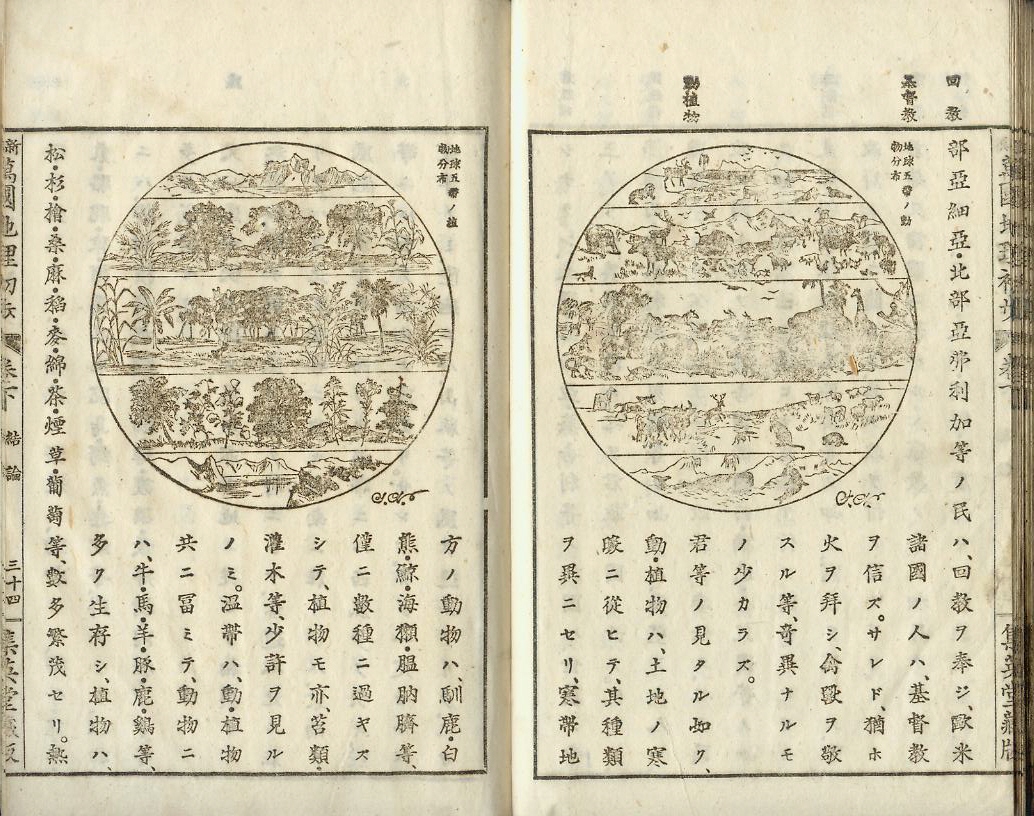 回教
基督教
動植物
部亞細亞・北部亞弗利加等ノ民ハ、回教ヲ奉ジ、歐米
諸國ノ人ハ、基督教
ヲ信ズ。サレド、猶ホ
火ヲ拜シ、禽獸ヲ敬
スル等、奇異ナルモ
ノ少カラズ。
君等ノ見タル如ク、
動・植物ハ、土地ノ寒
暖ニ從ヒテ、其種類
ヲ異ニセリ、寒帶地
地球五帶ノ動
物分布
集英堂藏版
方ノ動物ハ、馴鹿・白
熊・鯨・海獺・膃肭臍等、
僅ニ數種ニ過ギズ
シテ、植物モ亦、苔類・
灌木等、少許ヲ見ル
ノミ。溫帶ハ、動・植物
共ニ冨ミテ、動物ニ
ハ、牛・馬・羊・豚・鹿・鷄等、
多ク生存シ、植物ハ、
松・杉・檜・桑・麻・稻・麥・綿・茶・煙草・葡萄等、數多繁茂セリ。熱
地球五帶ノ植
物分布
萬國地理初步
卷下
結論
三十四
集英堂藏版